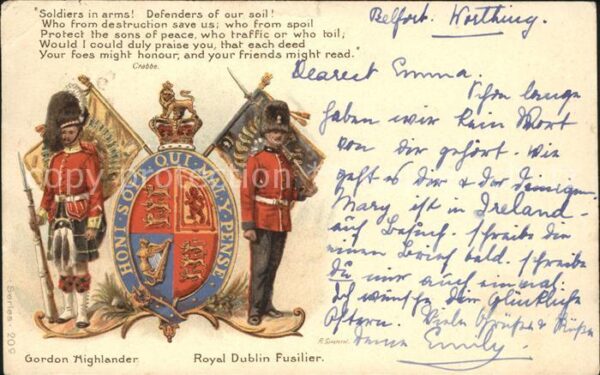 "Soldiers in arms! Defenders of our soil!
Who from destruction save us; who from spoil
Protect the sons of peace, who traffic or who toil;
Would I could duly praise you, that each deed
Your foes might honour, and your friends might read."
Crabbe.
Belfort. Worthing.
Dearest Emma.
Schon lange
haben wir kein Wort
von dir gehört. Wie
geht es Dir & den Deinigen
Mary ist in Ireland
auf Besuch. schreibe dir
einen Brief bald. schreibe
du mir auch einmal.
Ich wünsche Dir Glückliche
Ostern. Viele Grüsse & Küsse
Deine Emily.
HONI·SOIT·QUI·MAL·Y·PENSE
Series 206
Gordon Highlander.
Royal Dublin Fusilier.